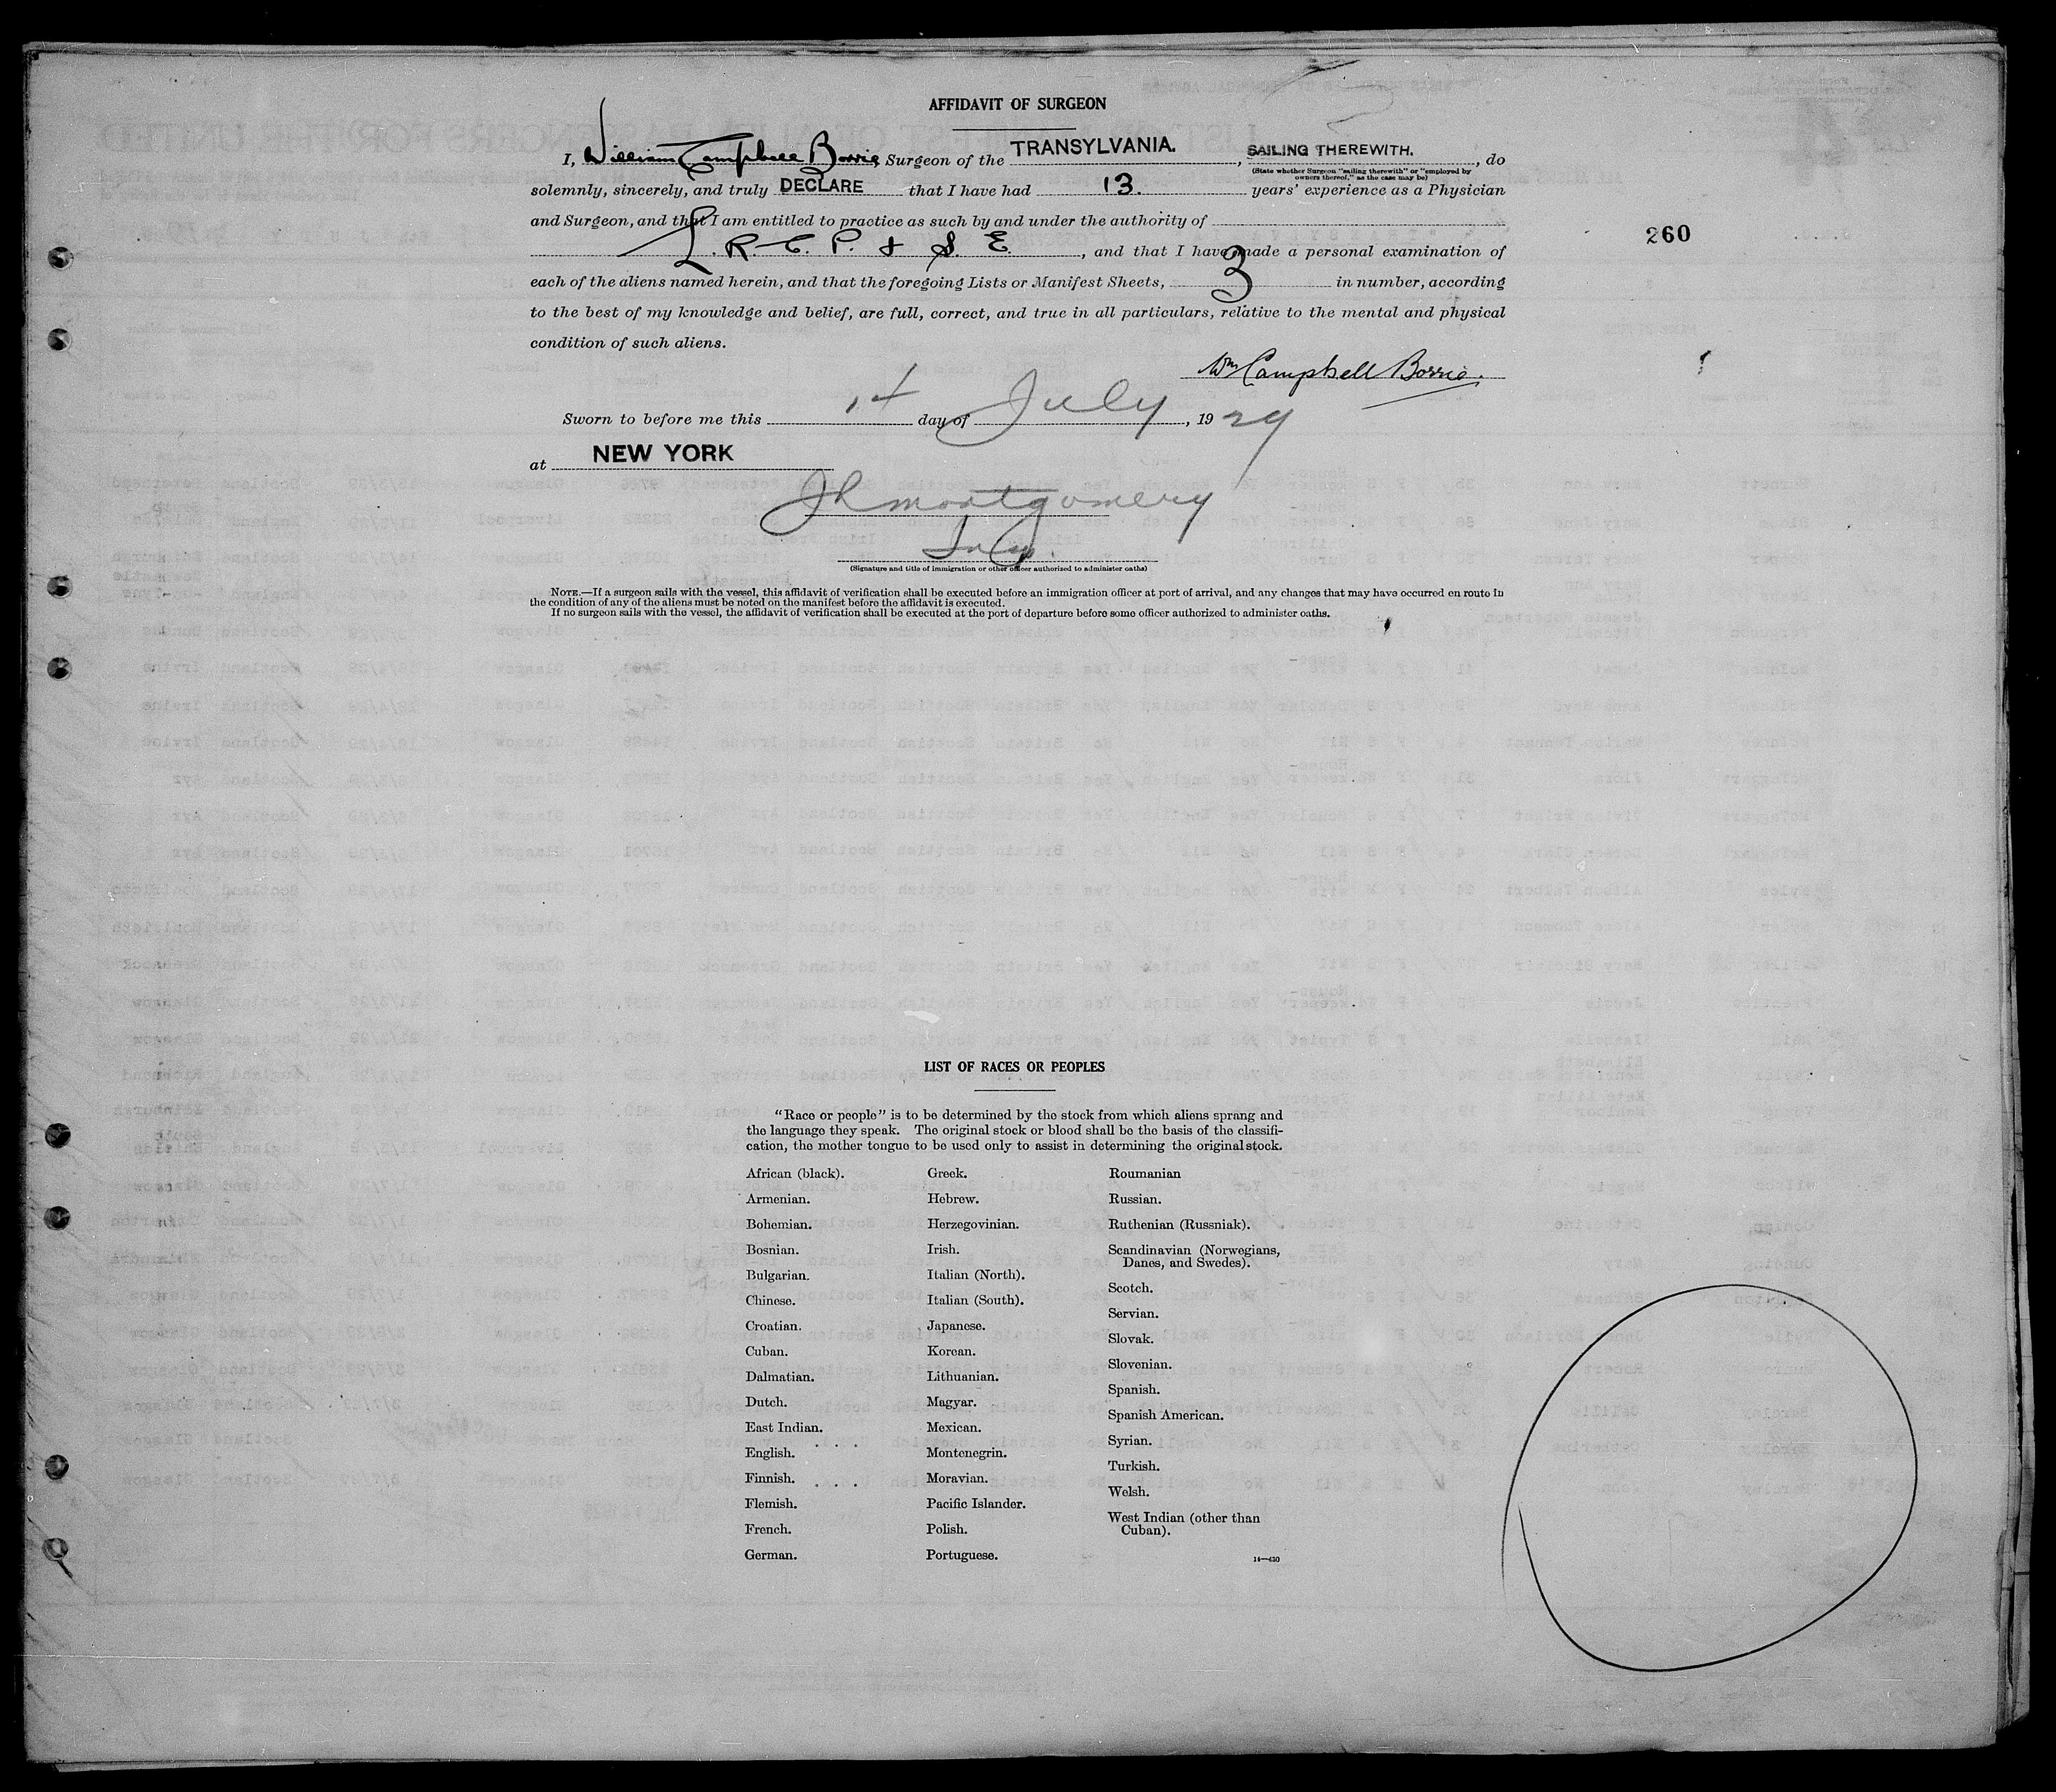 AFFIDAVIT OF SURGEON
I, William Campbell Borrie, Surgeon of the TRANSYLVANIA., SAILING THEREWITH., do
(State whether Surgeon "sailing therewith" or "employed by
owners thereof," as the case may be)
solemnly, sincerely, and truly DECLARE that I have had 13. years' experience as a Physician
and Surgeon, and that I am entitled to practice as such by and under the authority of
L.R.C.P. & S.E., and that I have made a personal examination of
260
each of the aliens named herein, and that the foregoing Lists or Manifest Sheets, 3 in number, according
to the best of my knowledge and belief, are full, correct, and true in all particulars, relative to the mental and physical
condition of such aliens.
Wm Campbell Borrie.
Sworn to before me this 14 day of July, 1929
at NEW YORK
JR Montgomery
(Signature and title of immigration or other officer authorized to administer oaths)
NOTE.—If a surgeon sails with the vessel, this affidavit of verification shall be executed before an immigration officer at port of arrival, and any changes that may have occurred en route in
the condition of any of the aliens must be noted on the manifest before the affidavit is executed.
If no surgeon sails with the vessel, the affidavit of verification shall be executed at the port of departure before some officer authorized to administer oaths.
LIST OF RACES OR PEOPLES
"Race or people" is to be determined by the stock from which aliens sprang and
the language they speak. The original stock or blood shall be the basis of the classifi-
cation, the mother tongue to be used only to assist in determining the original stock.
African (black).
Armenian.
Bohemian.
Bosnian.
Bulgarian.
Chinese.
Croatian.
Cuban.
Dalmatian.
Dutch.
East Indian.
English.
Finnish.
Flemish.
French.
German.
Greek.
Hebrew.
Herzegovinian.
Irish.
Italian (North).
Italian (South).
Japanese.
Korean.
Lithuanian.
Magyar.
Mexican.
Montenegrin.
Moravian.
Pacific Islander.
Polish.
Portuguese.
Roumanian
Russian.
Ruthenian (Russniak).
Scandinavian (Norwegians,
Danes, and Swedes).
Scotch.
Servian.
Slovak.
Slovenian.
Spanish.
Spanish American.
Syrian.
Turkish.
Welsh.
West Indian (other than
Cuban).
14—430